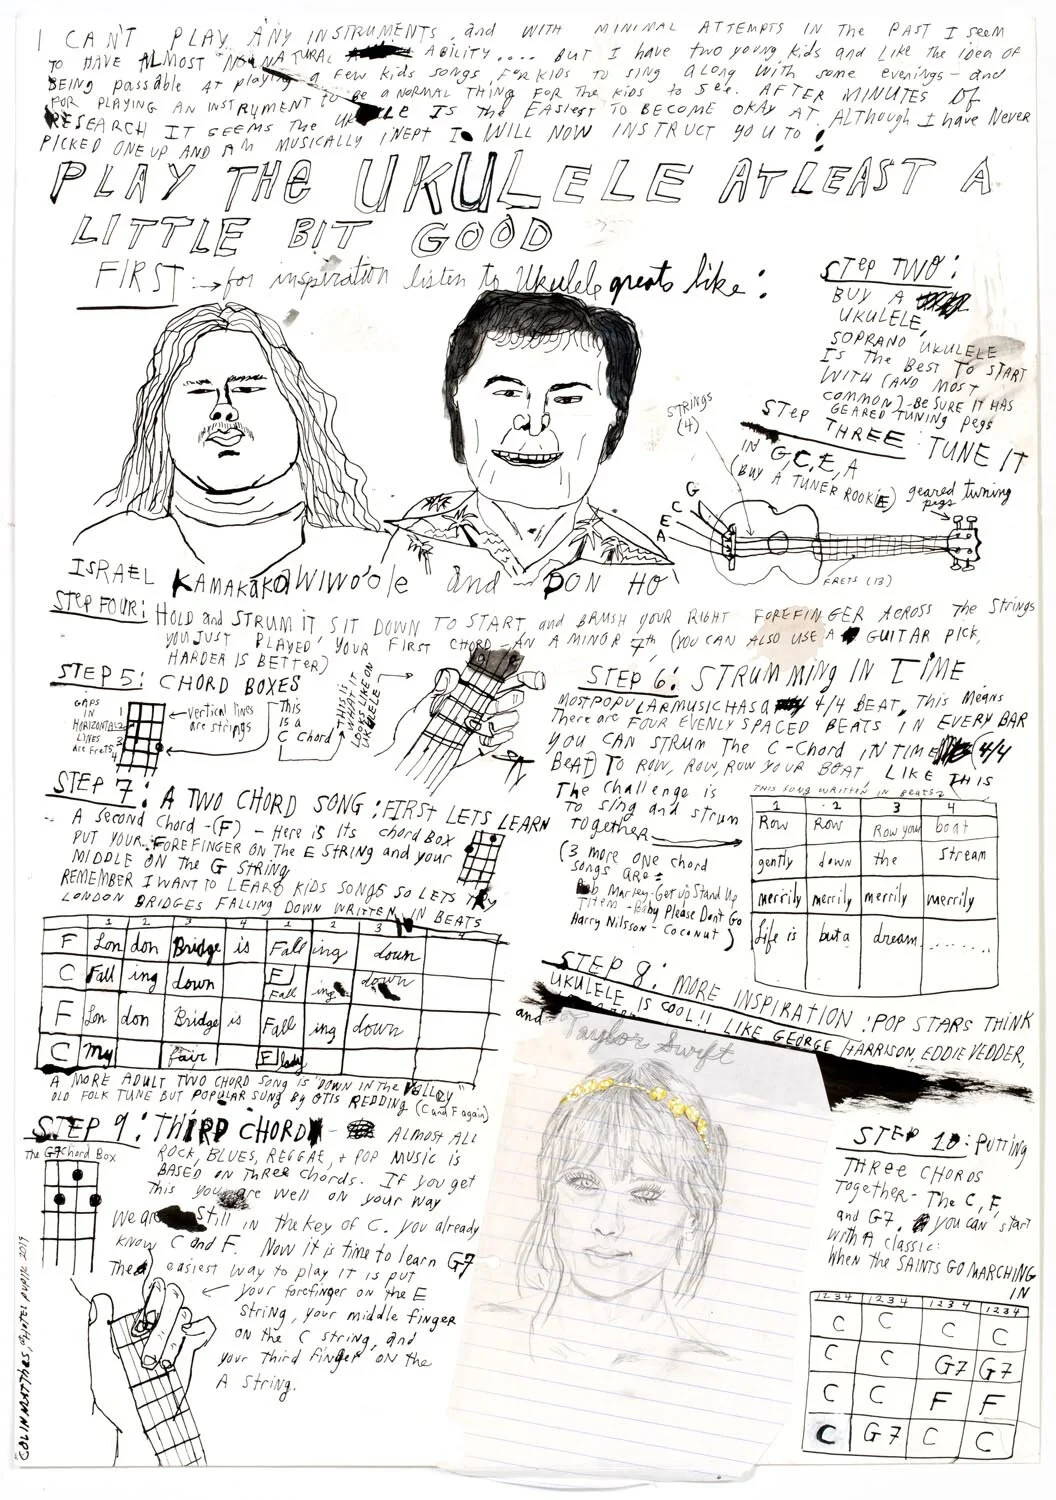 I CAN'T PLAY ANY INSTRUMENTS, and WITH MINIMAL ATTEMPTS IN THE PAST I SEEM
TO HAVE ALMOST NO NATURAL ABILITY.... BUT I HAVE TWO YOUNG KIDS and LIKE THE IDEA OF
BEING PASSABLE AT PLAYING a FEW KIDS SONGS, FOR KIDS TO SING ALONG WITH some evenings - and
FOR PLAYING AN INSTRUMENT to BE A NORMAL THING FOR THE KIDS to SEE. AFTER MINUTES OF
RESEARCH IT SEEMS THE UKULELE IS THE EASIEST TO BECOME OKAY AT. ALTHOUGH I HAVE NEVER
PICKED ONE UP AND AM MUSICALLY INEPT I WILL NOW INSTRUCT YOU TO:
PLAY THE UKULELE AT LEAST A
LITTLE BIT GOOD
FIRST → for inspiration listen to Ukulele greats like:
ISRAEL KAMAKAKAWIWO'OLE and DON HO
STEP TWO:
BUY A
UKULELE,
SOPRANO UKULELE
IS THE BEST TO START
WITH (AND MOST
COMMON) - BE SURE IT HAS
GEARED TUNING pegs
STEP THREE: TUNE IT
IN G,C,E,A
(BUY A TUNER ROOKIE)
STRINGS
(4)
geared tuning
pegs
G
C
E
A
FRETS (13)
STEP FOUR: HOLD and STRUM IT SIT DOWN TO START and BRUSH YOUR RIGHT FOREFINGER ACROSS THE Strings
YOU JUST PLAYED YOUR FIRST CHORD - AN A MINOR 7th (YOU CAN ALSO USE A GUITAR PICK,
HARDER IS BETTER)
STEP 5: CHORD BOXES
GAPS
IN
HORIZONTAL
LINES
are Frets
1
2
3
4
← vertical lines
are strings
This
is a
C Chord
THIS IS
WHAT IT
LOOKS LIKE ON
UKULELE
STEP 6: STRUMMING IN TIME
MOST POPULAR MUSIC HAS A 4/4 BEAT, This Means
There are FOUR EVENLY SPACED BEATS IN EVERY BAR
YOU CAN STRUM THE C-CHORD IN TIME (4/4
BEAT) TO ROW, ROW, ROW YOUR BOAT, LIKE THIS
The Challenge is
To sing and strum
Together
(3 more one chord
songs are:
Bob Marley - Get up Stand Up
Them - Baby Please Don't Go
Harry Nilsson - Coconut)
THIS SONG WRITTEN IN BEATS
1 2 3 4
Row Row Row your boat
gently down the Stream
merrily merrily merrily merrily
Life is but a dream .......
STEP 7: A TWO CHORD SONG: FIRST LETS LEARN
A second Chord - (F) - Here is its chord BOX
PUT YOUR FOREFINGER ON THE E STRING and your
MIDDLE ON THE G STRING
REMEMBER I WANT TO LEARN KIDS SONGS SO LETS TRY
LONDON BRIDGES FALLING DOWN WRITTEN IN BEATS
1 2 3 4 1 2 3 4
F Lon don Bridge is Fall ing down
C Fall ing down F Fall ing down
F Lon don Bridge is Fall ing down
C My fair F lady
A MORE ADULT TWO CHORD SONG IS "DOWN IN THE VALLEY"
OLD FOLK TUNE BUT POPULAR SUNG BY OTIS REDDING (C and F again)
STEP 8: MORE INSPIRATION: POP STARS THINK
UKULELE IS COOL!! LIKE GEORGE HARRISON, EDDIE VEDDER,
and
Taylor Swift
STEP 9: THIRD CHORD - ALMOST ALL
ROCK, BLUES, REGGAE, + POP MUSIC IS
BASED ON THREE CHORDS. IF YOU get
This you are well on your way
We are Still IN the key of C. You already
know C and F. Now it is time to learn G7
The easiest way to play IT is PUT
your forefinger on the E
String, your middle finger
on the C string, and
your third finger on the
A String.
The G7 Chord Box
COLIN MATTHES, 2019
STEP 10: PUTTING
THREE CHORDS
Together - The C, F,
and G7. you can start
with A classic:
When the SAINTS GO MARCHING
IN
1 2 3 4 1 2 3 4 1 2 3 4 1 2 3 4
C C C C
C C G7 G7
C C F F
C G7 C C